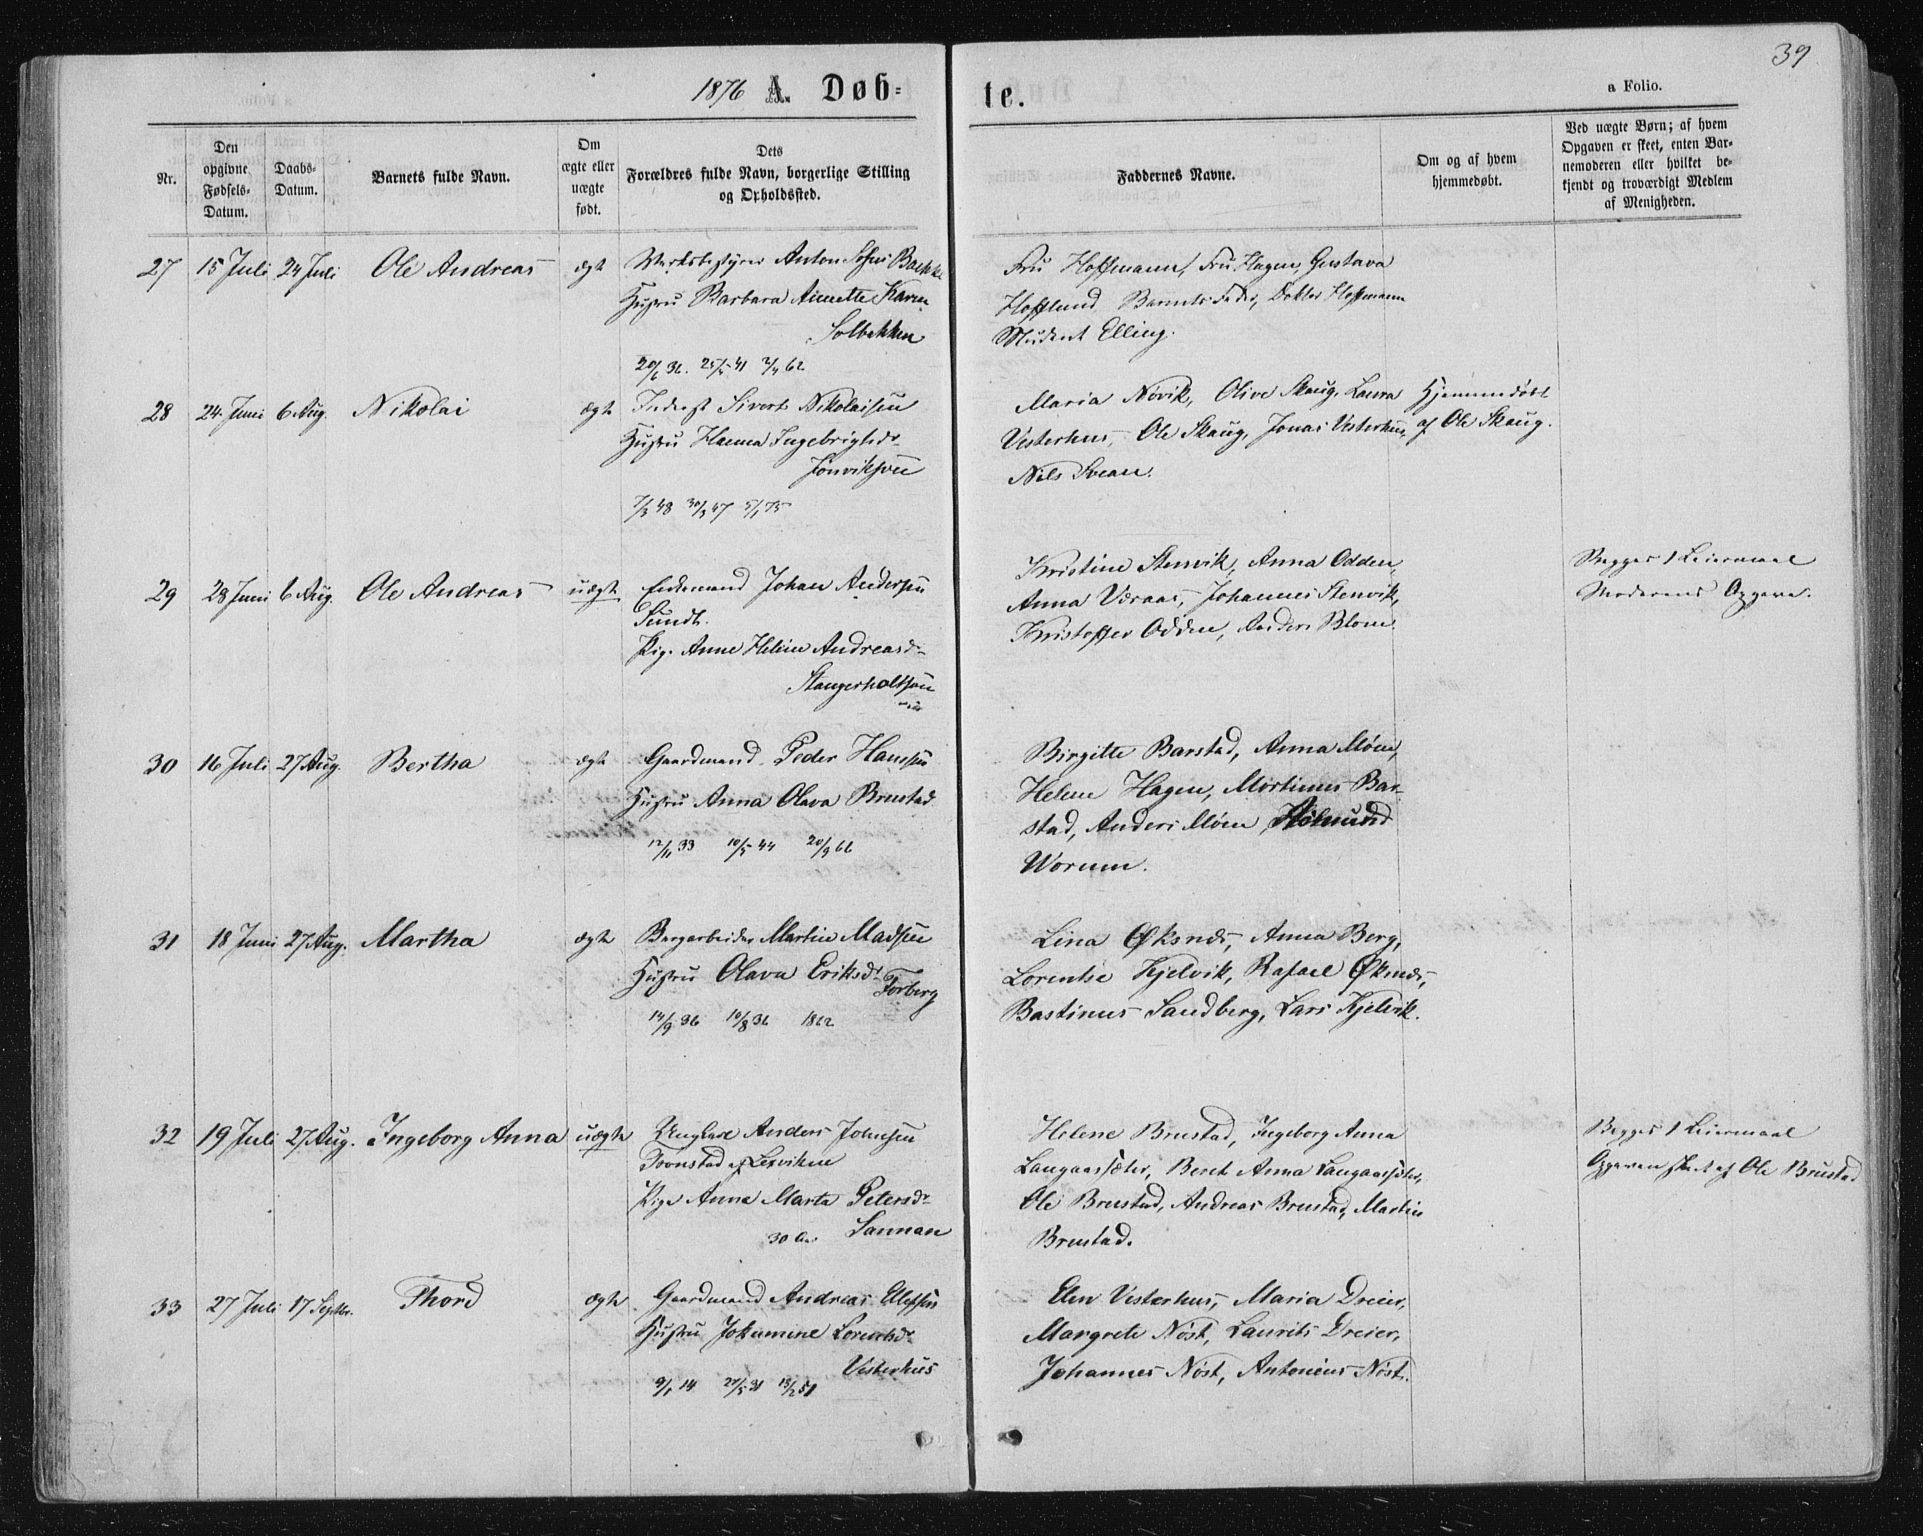 39
1876 A. Døb=
te.
a Folio.
Nr.
Den opgivne Fødsels-Datum.
Daabs-Datum.
Barnets fulde Navn.
Om ægte eller uægte født.
Dets Forældres fulde Navn, borgerlige Stilling og Opholdssted.
Faddernes Navne.
Om og af hvem hjemmedøbt.
Ved uægte Børn; af hvem Opgaven er skeet, enten Barnemoderen eller hvilket bekjendt og troværdigt Medlem af Menigheden.
27 15 Juli 24 Juli Ole Andreas ægte
Anton Bakke
Hustru Barbara Annette Karen
Solbakken
20/6 36. 25/5 41 62
Fru Hoffmann, Fru Hagen, Gustava
Hofflund Barnets Fader, Doktor Hoffmann
Student Elling.
28 24 Juni 6 Aug. Nikolai ægte
Inderst Sivert Nikolaisen
Hustru Hanna Ingebrigtsdr
Jonviksveen
7/3 48 30/3 47 5/1 75
Maria Növik, Olive Skaug, Laura
Vesterhus, Ole Skaug, Jonas Vesterhus,
Nils Svean.
Hjemmedöbt
af Ole Skaug.
29 28 Juni 6 Aug. Ole Andreas uægte
Enkemand Johan Andersen
Sundt.
Pig. Anne Helene Andreasdr
Kristine Stenvik, Anna Odden,
Anna Væraas, Johannes Stenvik,
Kristoffer Odden, Anders Blom.
Begges 1 Leiermaal
Moderens Opgave.
30 16 Juli 27 Aug. Bertha ægte
Gaardmand Peder Hansen
Hustru Anna Olava Brustad
12/11 33 10/5 44 20/9 66
Birgitte Barstad, Anna Möen,
Helene Hagen, Mortinus Bar-
stad, Anders Möen,
Worum.
31 18 Juni 27 Aug. Martha ægte
Bergarbeider Martin Madsen
Hustru Olava Eriksdr
Forberg
14/9 36 10/8 36 1862
Lina Øksnes, Anna Berg,
Lorentse Kjelvik, Rafael Øksnes,
Bastinus Sandberg, Lars Kjelvik.
32 19 Juli 27 Aug. Ingeborg Anna uægte
Ungkarl Anders Johnsen
Tronstad af Lexviken
Pige Anna Marta Petersdr
30 Aar Sannan
Helene Brustad, Ingeborg Anna
Langaassæter, Beret Anna Langaassæter,
Ole Brustad, Andreas Brustad, Martin
Brustad.
Begges 1 Leiermaal
Opgaven skeet af Ole Brustad
33 27 Juli 17 Septbr. Thord ægte
Gaardmand Andreas Ellefsen
Hustru Jokumine Lorentsdr
Vesterhus
9/1 14 31 13/2 51
Elen Vesterhus, Maria Dreier,
Margrete Nöst, Laurits Dreier,
Johannes Nöst, Antonius Nöst.